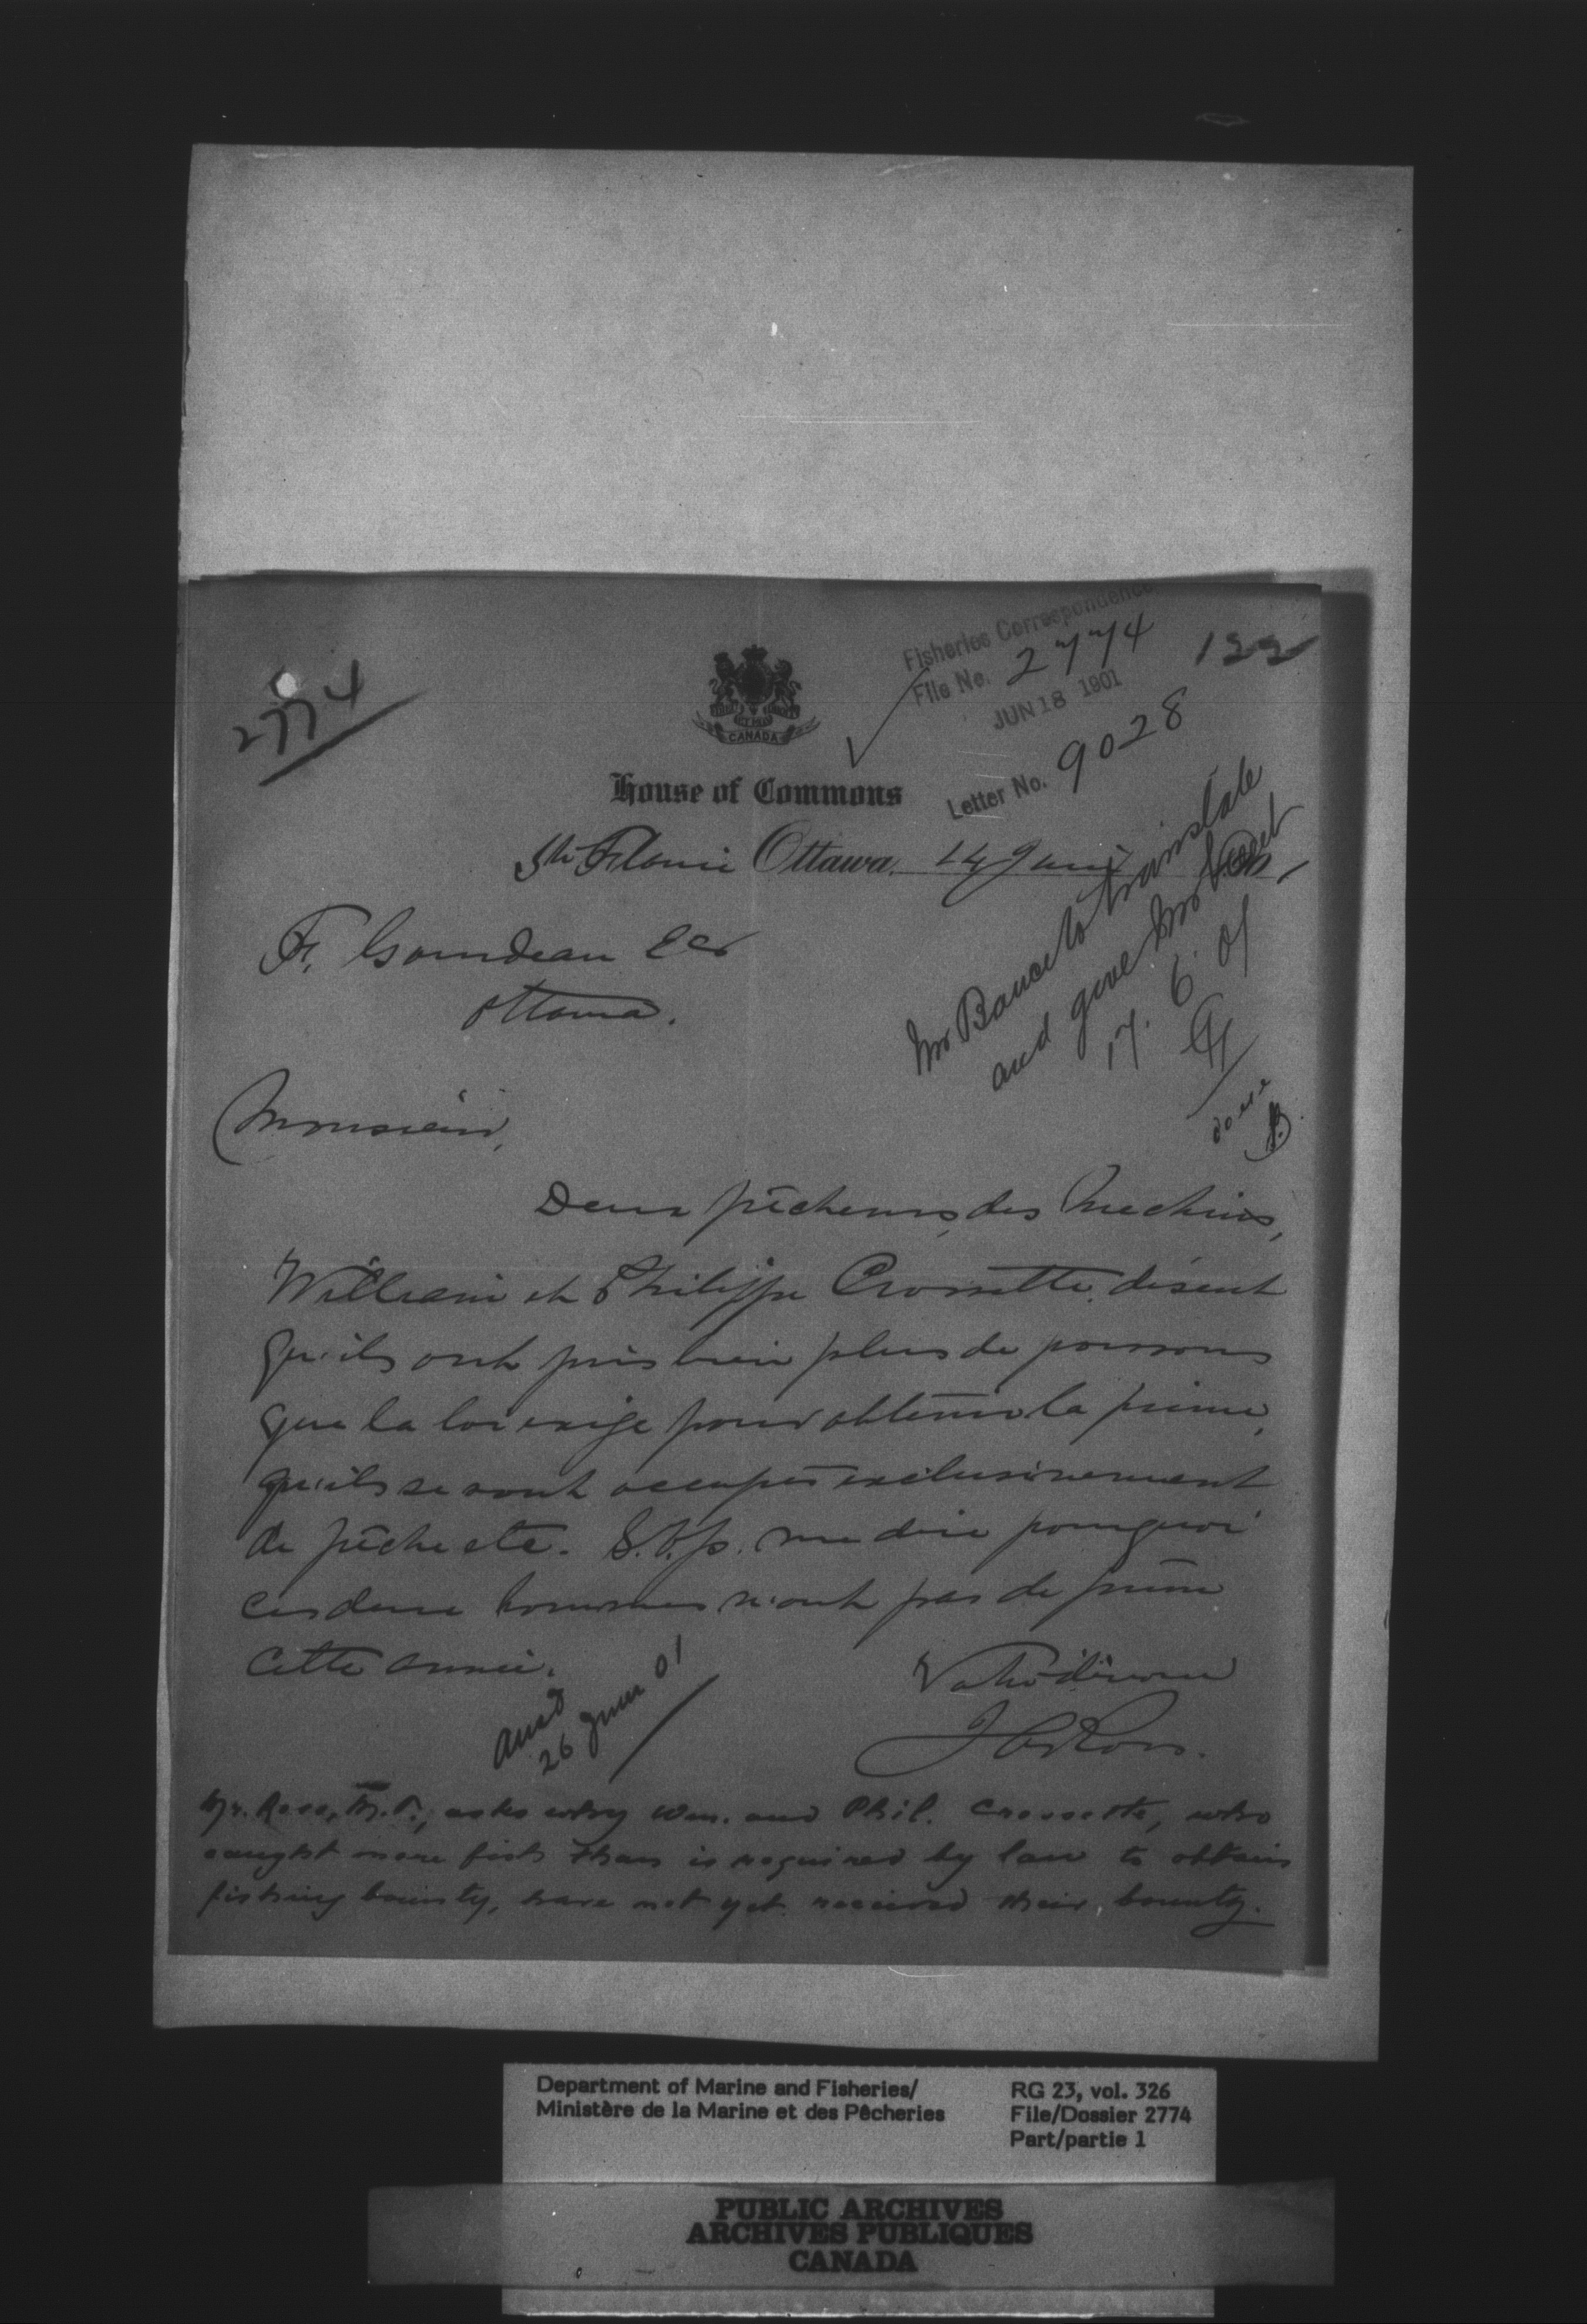 2774
Fisheries Correspondence
File No. 2774
JUN 18 1901
Letter No. 9028
122
CANADA
House of Commons
Ste Flavie Ottawa, 14 Juin
F. Gourdeau Ecr
Ottawa.
Mr to translate
and give Mr
17.6.01
done
Monsieur,
Deux pêcheurs, des Mechins,
William et Philippe Crousette, disent
qu'ils ont pris bien plus de poissons
que la loi exige pour obtenir la prime,
qu'ils se sont occupés exclusivement
de pêche etc. S.V.p. me dire pourquoi
ces deux hommes n'ont pas de prime
cette année.
Votre dévoué
J A Ross.
ansd
26 June 01
Mr. Ross, M.P., asks why Wm. and Phil. Crousette, who
caught more fish than is required by law to obtain
fishing bounty, have not yet received their bounty.
Department of Marine and Fisheries/
Ministère de la Marine et des Pêcheries
RG 23, vol. 326
File/Dossier 2774
Part/partie 1
PUBLIC ARCHIVES
ARCHIVES PUBLIQUES
CANADA